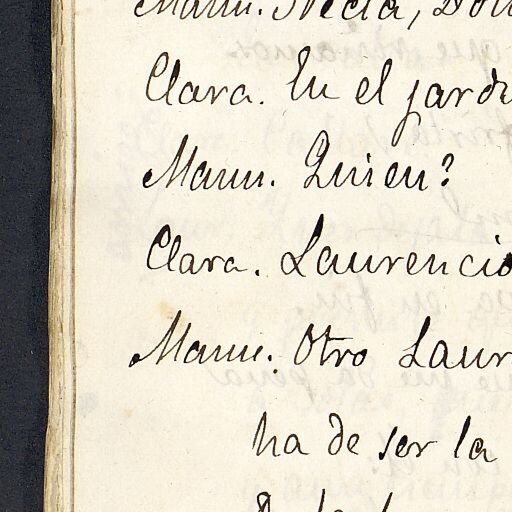 Manu. Necia,
Clara. En el jardi
Manu. Quien?
Clara. Laurencio
Manu. Otro Laur
ha de ser la